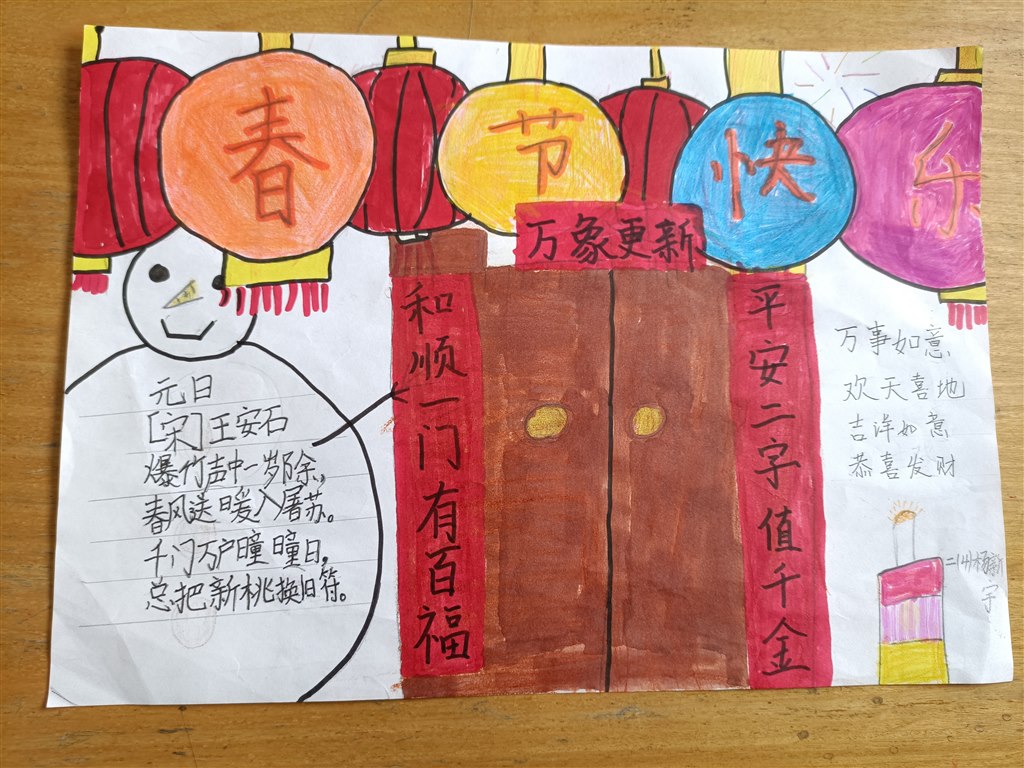 春节快乐
万象更新
和顺一门有百福
平安二字值千金
元日
[宋]王安石
爆竹声中一岁除,
春风送暖入屠苏。
千门万户曈曈日,
总把新桃换旧符。
万事如意
欢天喜地
吉洋如意
恭喜发财
宇